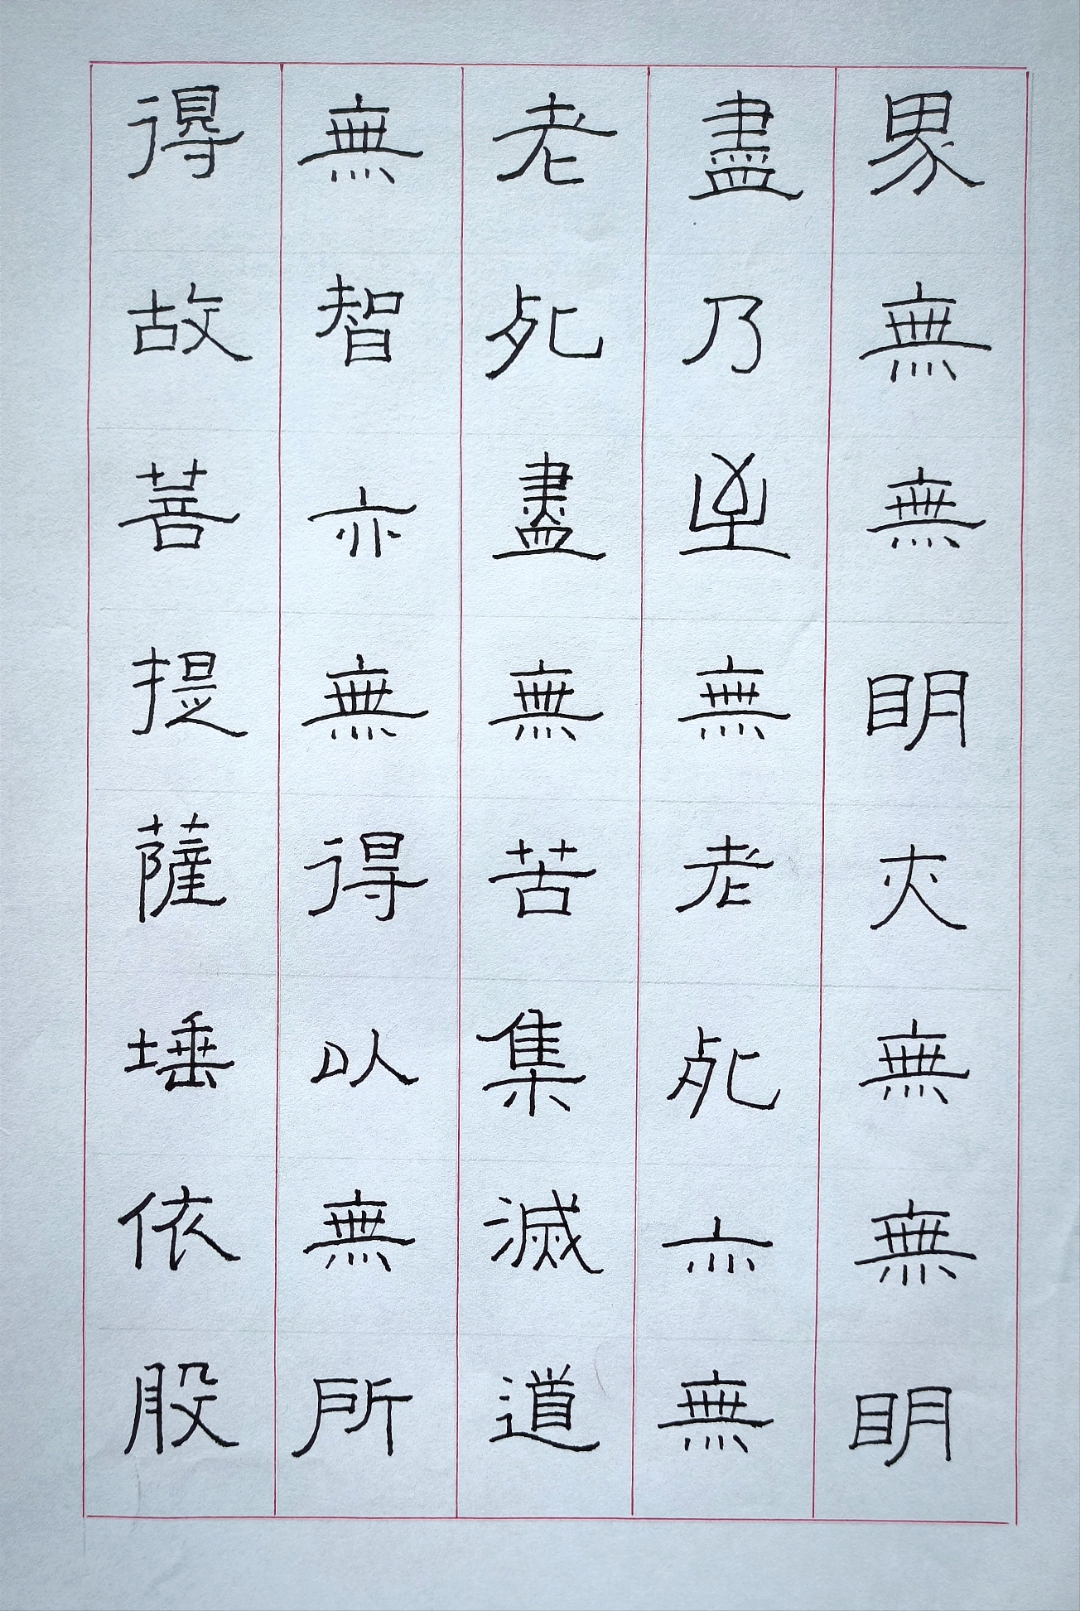 界無無明亦無無明
盡乃至無老死亦無
老死盡無苦集滅道
無智亦無得以無所
得故菩提薩埵依般